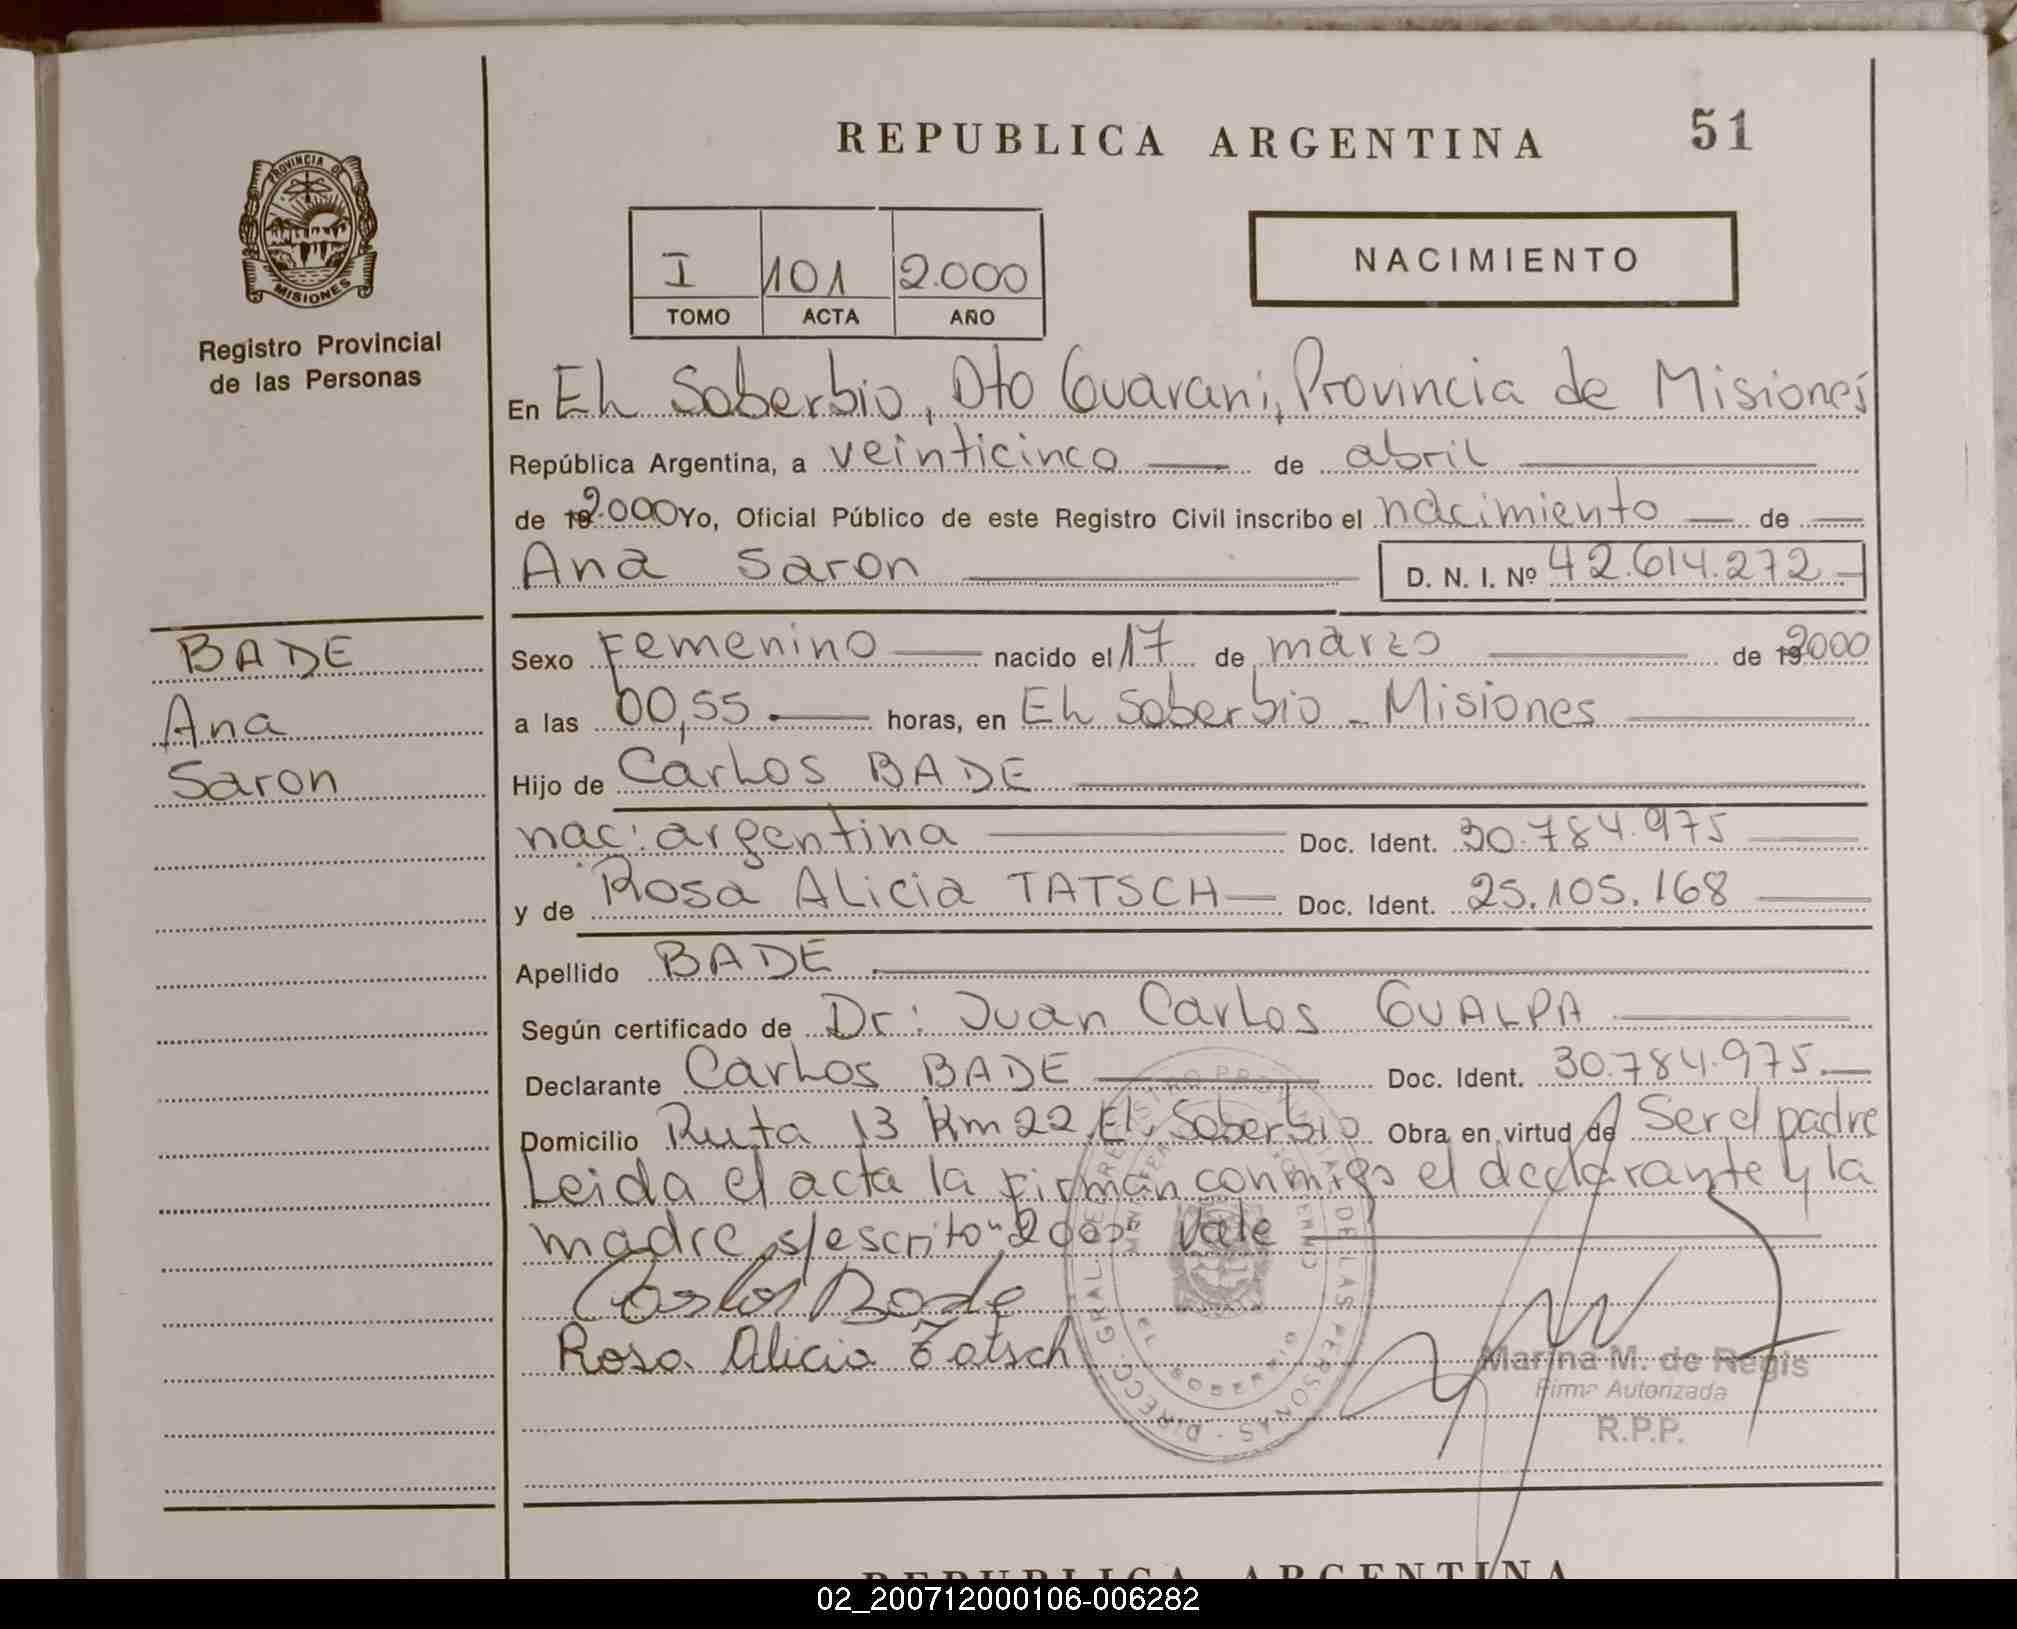 REPUBLICA ARGENTINA 51
PROVINCIA DE
MISIONES
Registro Provincial
de las Personas
I 101 2.000
TOMO ACTA AÑO
NACIMIENTO
En El Soberbio, Dto Guarani, Provincia de Misiones
República Argentina, a veinticinco de abril
de 2.000 Yo, Oficial Público de este Registro Civil inscribo el nacimiento de
Ana Saron D. N. I. Nº 42.614.272
BADE
Ana
Saron
Sexo Femenino nacido el 17 de marzo de 2000
a las 00,55 horas, en El Soberbio - Misiones
Hijo de Carlos BADE
nac: argentina Doc. Ident. 30.784.975
y de Rosa Alicia TATSCH Doc. Ident. 25.105.168
Apellido BADE
Según certificado de Dr: Juan Carlos GUALPA
Declarante Carlos BADE Doc. Ident. 30.784.975
Domicilio Ruta 13 Km 22, El Soberbio Obra en virtud de Ser el padre
Leida el acta la firman conmigo el declarante y la
madre s/escrito "2000" vale
Carlos Bade
Rosa Alicia Tatsch
DIRECC. GRAL. DE REGISTRO PROVINCIAL DE LAS PERSONAS
EL SOBERBIO
Marina M. de Regis
Firma Autorizada
R.P.P.
REPUBLICA ARGENTINA
02_200712000106-006282